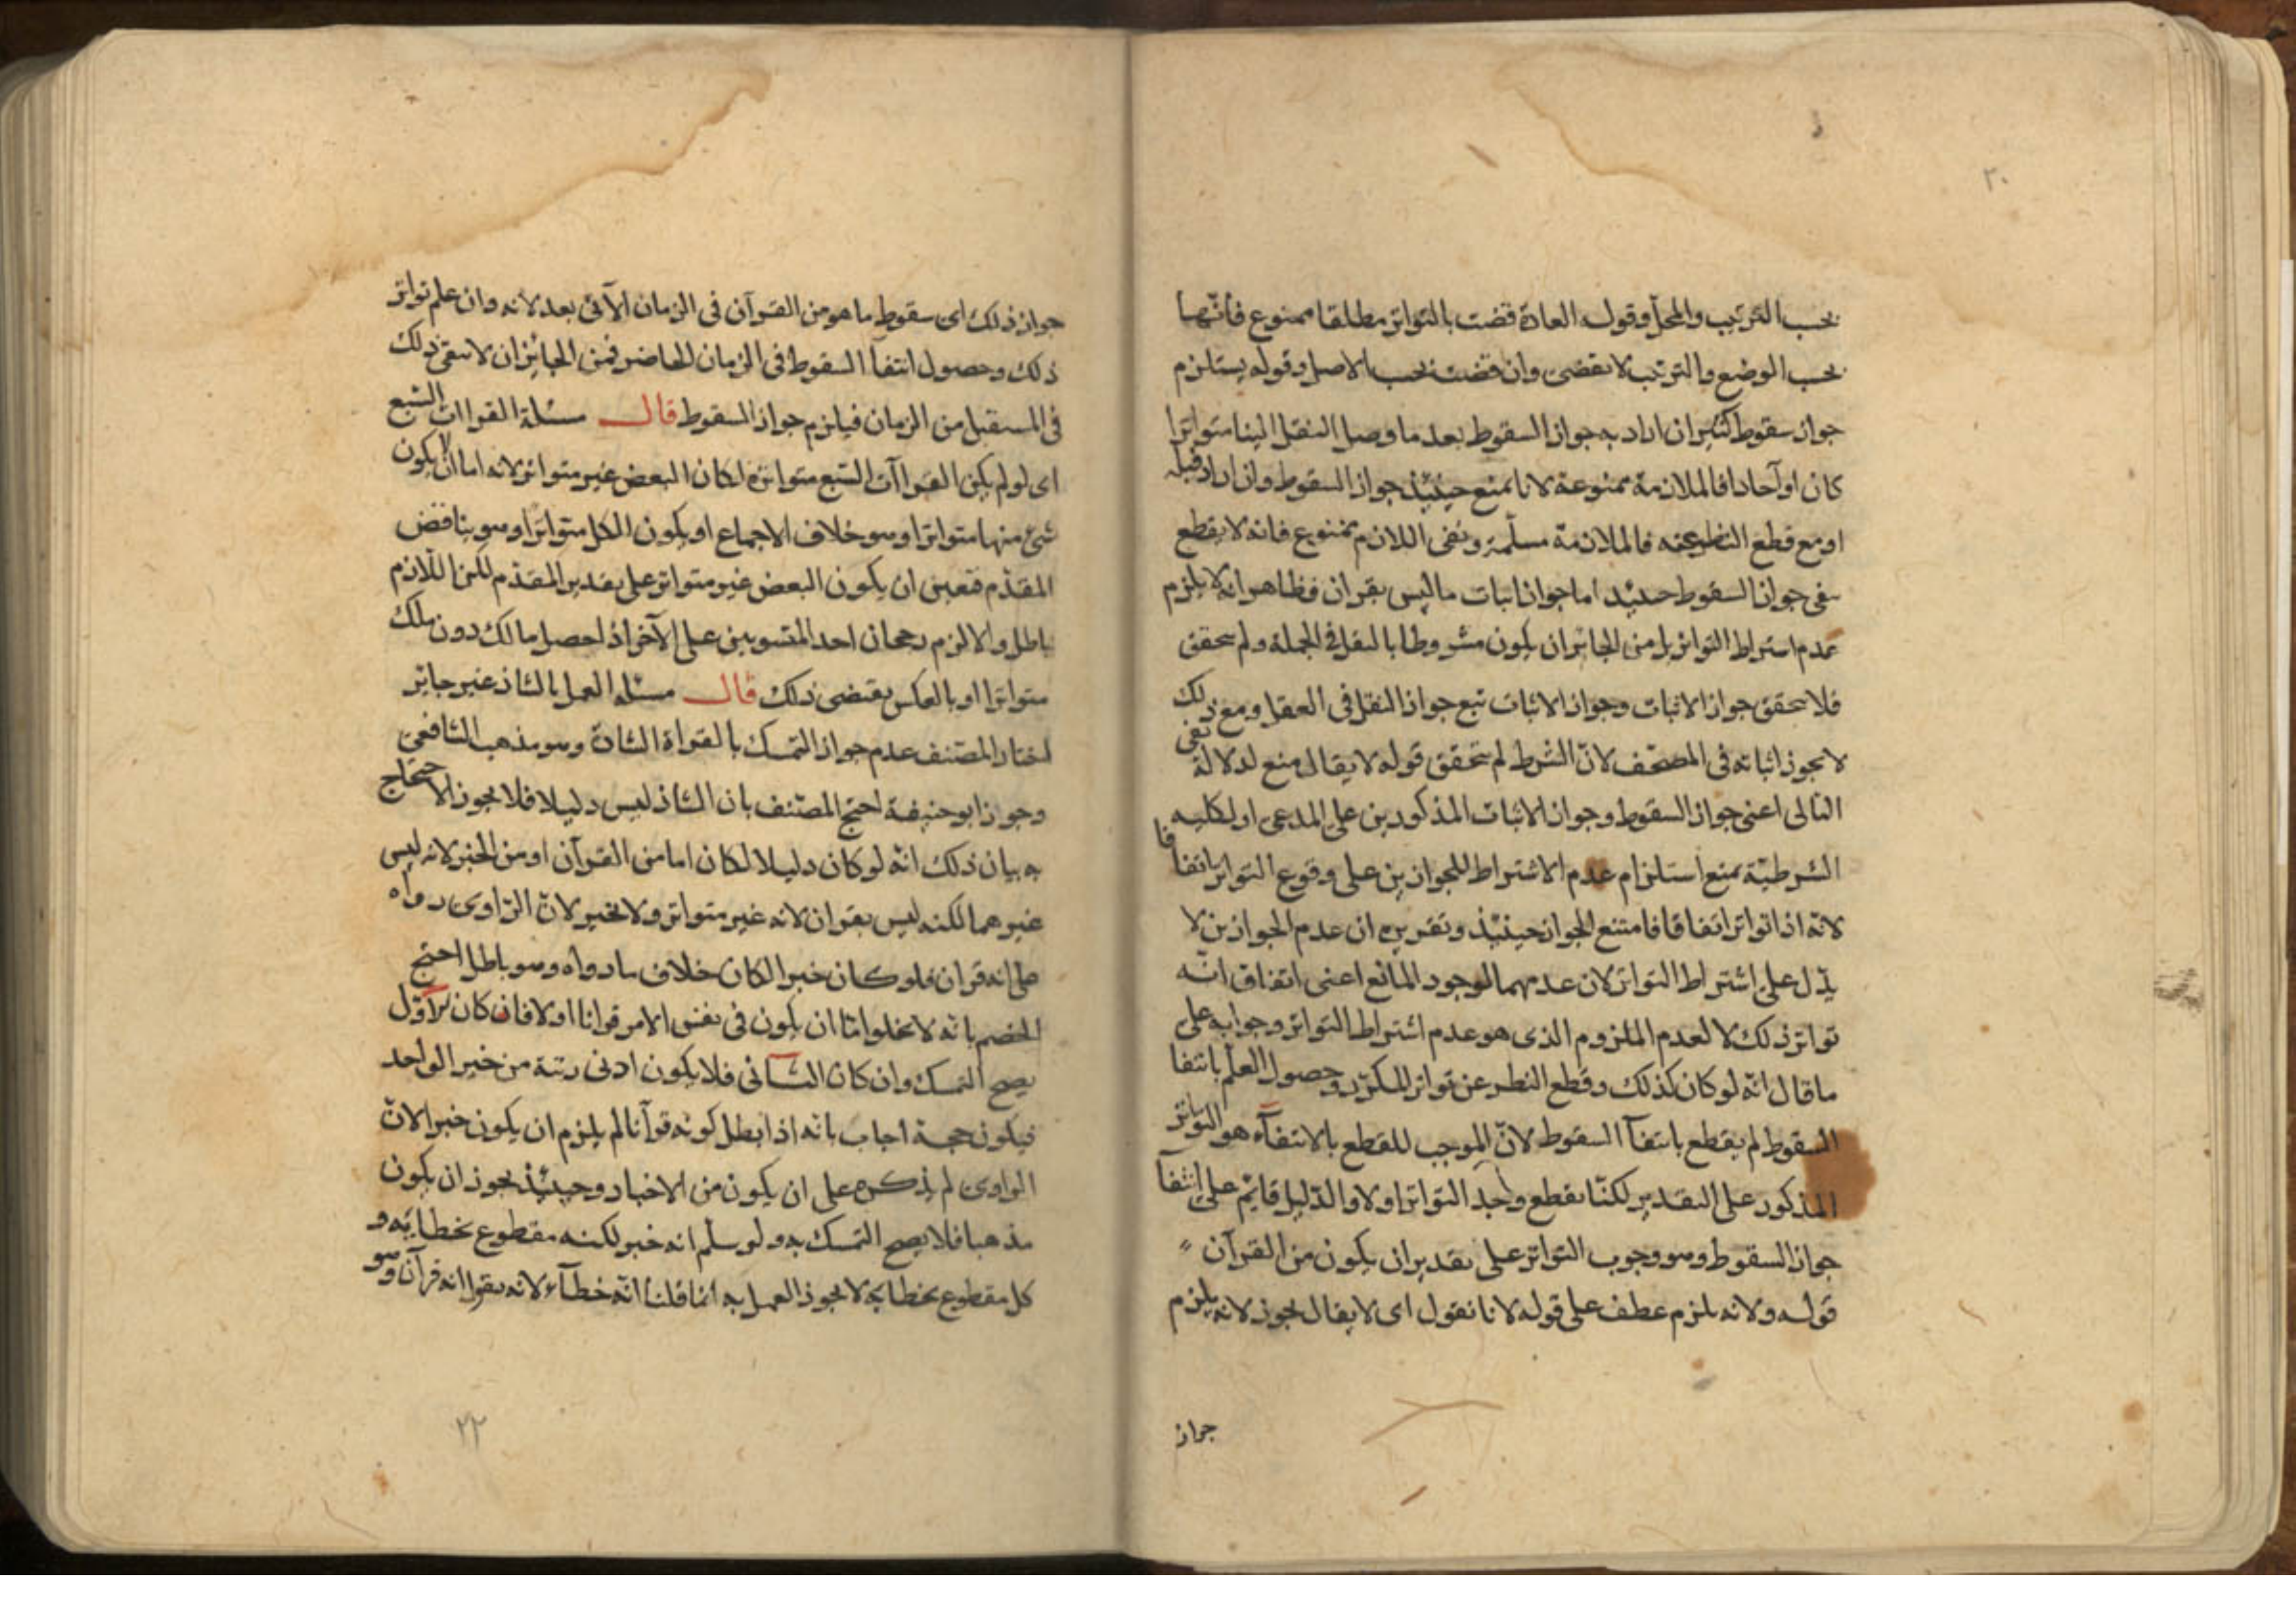 ٣٠
بحسب الترتيب والمحل وقوله العادة قضت بالتواتر مطلقا ممنوع فانها
بحسب الوضع والترتيب لا تقضى وان قضت بحسب الاصل وقوله يستلزم
جواز سقوط كثير ان اراد به جواز السقوط بعد ما وصل النقل الينا متواترا
كان او آحادا فالملازمة ممنوعة لانا نمنع حينئذ جواز السقوط وان اراد قبله
او مع قطع النظر عنه فالملازمة مسلّمة ونفى اللازم ممنوع فانه لا يقطع
بنفى جواز السقوط حينئذ اما جواز اثبات ما ليس بقران فظاهر انه لا يلزم
عدم اشتراط التواتر بل من الجائز ان يكون مشروطا بالنقل فى الجملة ولم يتحقق
فلا يتحقق جواز الاثبات وجواز الاثبات تبع جواز النقل فى العقل ومع ذلك
لا يجوز اثباته فى المصحف لانّ الشرط لم يتحقق قوله لا يقال منع لدلالة نفى
التالى اعنى جواز السقوط وجواز الاثبات المذكورين على المدعى او لكلية
الشرطيّة بمنع استلزام عدم الاشتراط للجوازين على وقوع التواتر اتفاقا
لانّه اذا تواتر اتفاقا فامتنع الجواز حينئذ وتقريره ان عدم الجوازين لا
يدّل على اشتراط التواتر لان عدمهما لوجود المانع اعنى اتفاق انّه
تواتر ذلك لا لعدم الملزوم الذى هو عدم اشتراط التواتر وجوابه على
ما قال انّه لو كان كذلك وقطع النظر عن تواتر المكرّر وحصول العلم بانتفا
السقوط لم يقطع بانتفآ السقوط لانّ الموجب للقطع بالانتفآء هو التواتر
المذكور على التقدير لكنّا نقطع وجد التواتر اولا والدّليل قايم على انتفآ
جواز السقوط وهو وجوب التواتر على تقدير ان يكون من القرآن
قوله ولانه يلزم عطف على قوله لانا نقول اى لا يقال يجوز لانه يلزم
جواز
جواز ذلك اى سقوط ما هو من القرآن فى الزمان الآتى بعد لانه وان علم تواتر
ذلك وحصول انتفآ السقوط فى الزمان الحاضر فمن الجائز ان لا يبقى ذلك
فى المستقبل من الزمان فيلزم جواز السقوط قال مسئلة القراات السّبع
اى لو لم يكن القراآت السّبع متواترة لكان البعض غير متواتر لانه اما ان لا يكون
شئ منها متواترا وهو خلاف الاجماع او يكون الكل متواترا وهو يناقض
المقدّم فتعين ان يكون البعض غير متواتر على تقدير المقدّم لكن اللّازم
باطل والا لزم رجحان احد المتسويين على الآخر اذ لحصل مالك دون ملك
متواترا او بالعكس يقتضى ذلك قال مسئله العمل بالشاذ غير جايز
اختار المصّنف عدم جواز التمسك بالقراة الشاذة وهو مذهب الشافعى
وجوز ابو حنيفة احتج المصّنف بان الشاذ ليس دليلا فلا يجوز الاحتجاج
به بيان ذلك انّه لو كان دليلا لكان اما من القرآن او من الخبر لانه ليس
غيرهما لكنه ليس بقران لانه غير متواتر ولا بخبر لانّ الرّاوى رواه
على انه قران فلو كان خبرا لكان خلاف ما رواه وهو باطل احتج
الخصم بانّه لا يخلوا امّا ان يكون فى نفس الامر قرانا او لا فان كان الاوّل
يصح التمسك وان كان الثانى فلا يكون ادنى رتبة من خبر الواحد
فيكون حجة اجاب بانه اذا بطل كونه قرآنا لم يلزم ان يكون خبرا لانّ
الراوى لم يذكره على ان يكون من الاخبار وحينئذ يجوز ان يكون
مذهبا فلا يصح التمسك به ولو سلّم انه خبر لكنه مقطوع بخطايه و
كل مقطوع بخطايه لا يجوز العمل به انما قلنا انّه خطآء لانه يقول انه قرآن وهو
٢٢